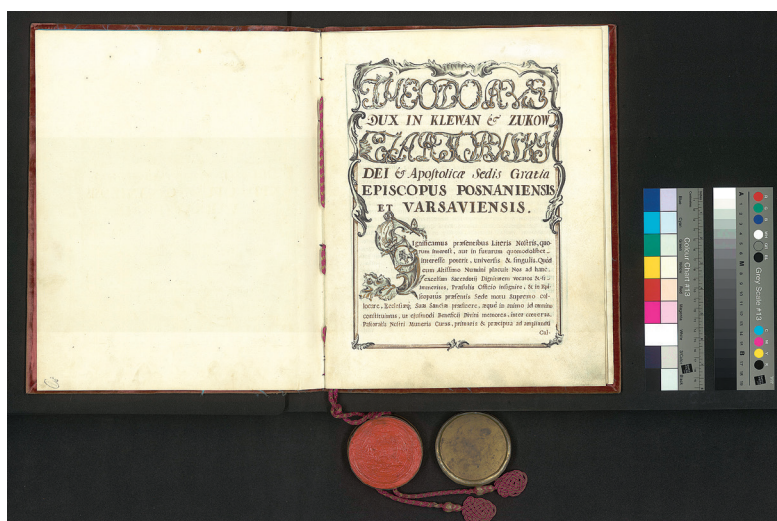 THEODORUS
DUX IN KLEWAN & ZUKOW
CZARTORYSKI
DEI & Apoſtolicæ Sedis Gratia
EPISCOPUS POSNANIENSIS
ET VARSAVIENSIS.
Significamus præſentibus Literis Noſtris, quo-
rum intereſt, aut in futurum quomodolibet
intereſſe poterit, univerſis & ſingulis. Quod
cum Altiſſimo Numini placuit Nos ad hanc
excelſam Sacerdotii Dignitatem vocatos
Præſulis Officio inſignire, & in Epi-
ſcopatus præſentis Sede motu Supremo col-
locare, Eccleſiæq; Suæ Sanctæ præficere, æquo in animo
conſtituimus, ut ejuſmodi Beneficii Divini memores, inter cæteras
Paſtoralis Noſtri Muneris Curas, primario & præcipuè ad ampliandū
Cul-
Colour Chart #13
Grey Scale #13
A
M
B